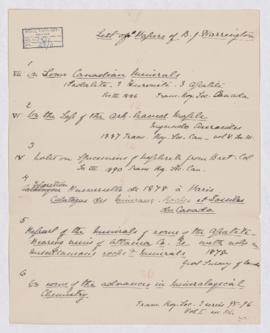 List of Papers of B. J. Harrington
VII On Some Canadian Minerals
Sodalite - 
Vol III 1886 Trans. Roy. Soc. Canada
VI On the Sap of the Ash-leaved Maple
Negundo Aceroides
1887 Trans. Roy. Soc. Can - vol V. Sec III
3 Note on Specimen of from Brit. Col
Vol III 1890 Trans Roy. Soc. Can.
4 Exposition Universelle de 1878 à Paris
Catalogue des Minéraux, Roches et Fossiles
du Canada
5 Report of the minerals of some of the Apatite-
bearing veins of Ottawa Co. with notes on
miscellaneous rocks & minerals 1878
Geol Survey of Canada
6 On some of the advances in Mineralogical
Chemistry
Trans Roy. Soc. 2 series 95-96
Vol I sec III.